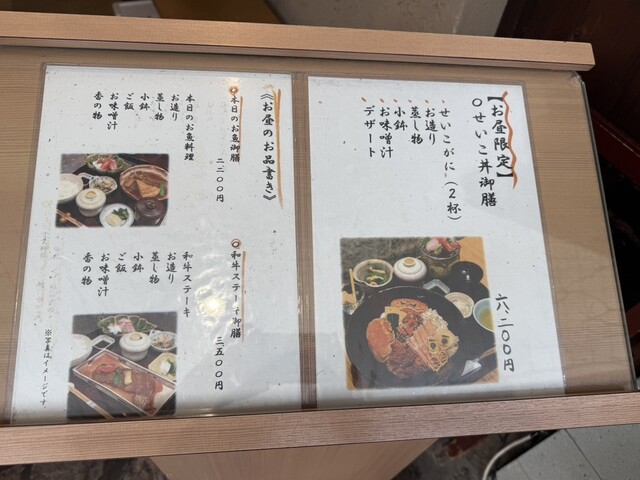 【お昼限定】
○せいこ丼御膳
せいこがに（２杯）
お造り
蒸し物
小鉢
お味噌汁
デザート
六、二〇〇円
《お昼のお品書き》
○本日のお魚御膳
二二〇〇円
本日のお魚料理
お造り
蒸し物
小鉢
ご飯
お味噌汁
香の物
○和牛ステーキ御膳
三五〇〇円
和牛ステーキ
お造り
蒸し物
小鉢
ご飯
お味噌汁
香の物
※写真はイメージです